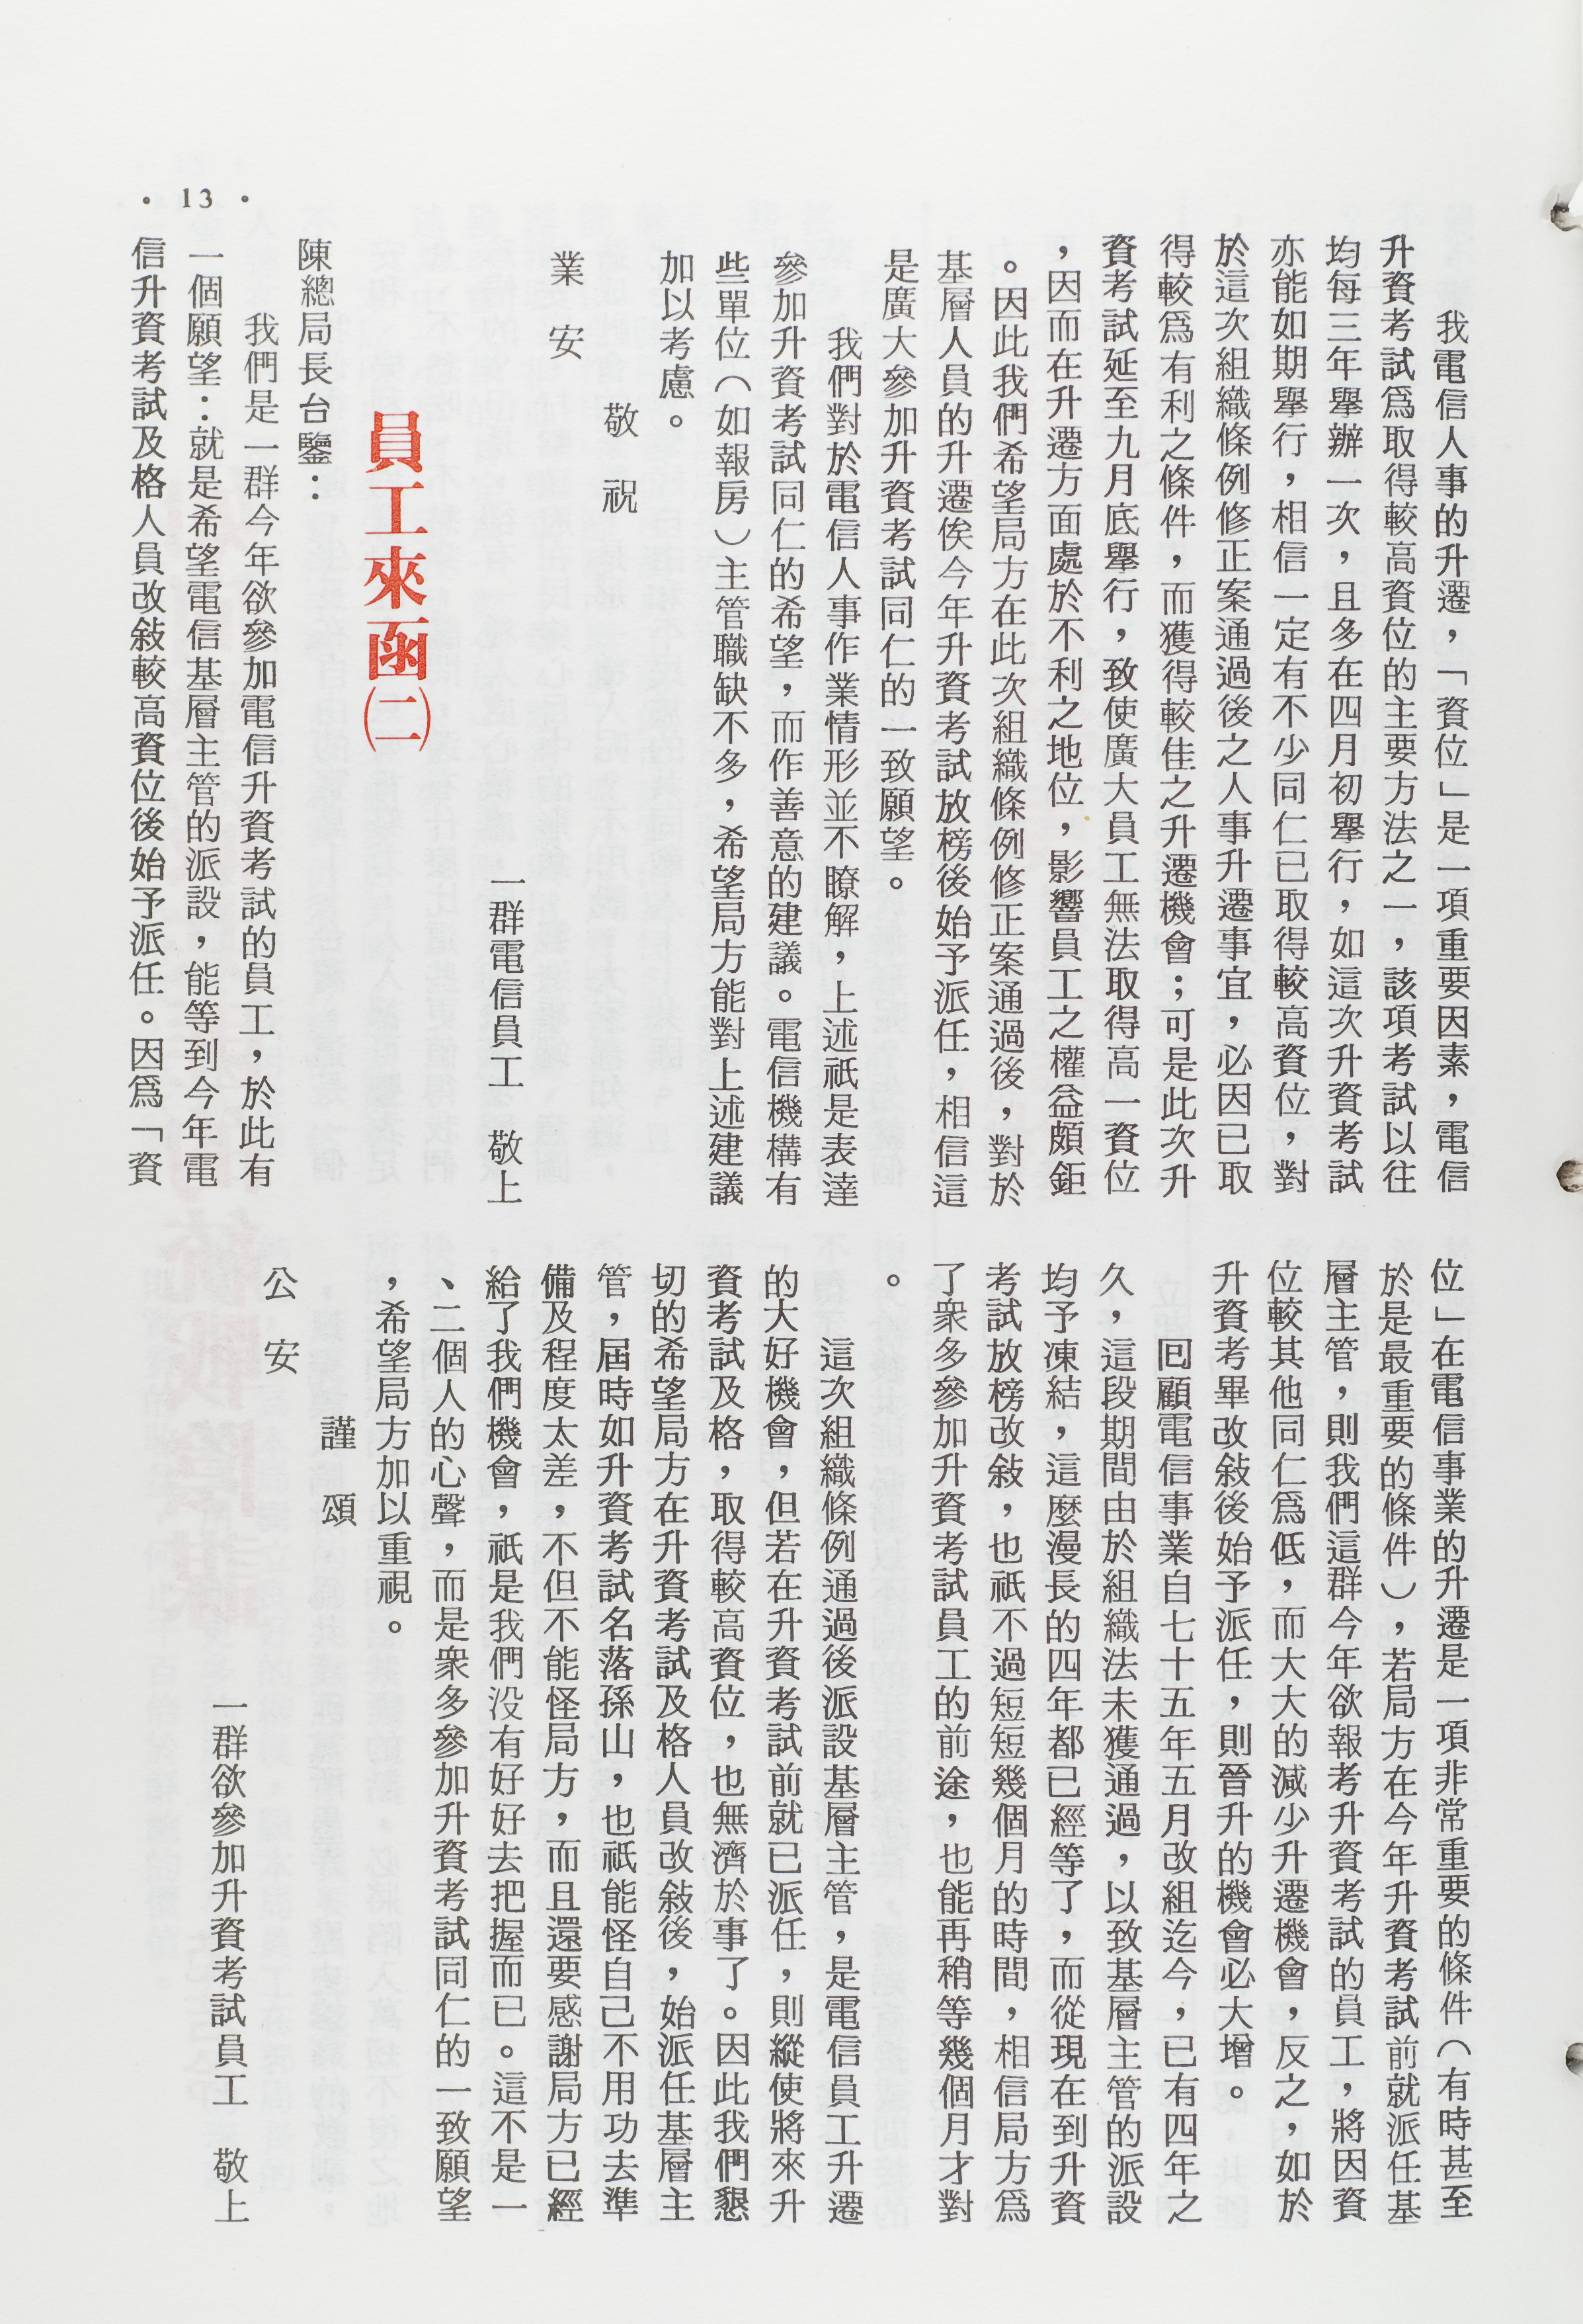 我電信人事的升遷，「資位」是一項重要因素，電信
升資考試爲取得較高資位的主要方法之一，該項考試以往
均每三年舉辦一次，且多在四月初舉行，如這次升資考試
亦能如期舉行，相信一定有不少同仁已取得較高資位，對
於這次組織條例修正案通過後之人事升遷事宜，必因已取
得較爲有利之條件，而獲得較佳之升遷機會；可是此次升
資考試延至九月底舉行，致使廣大員工無法取得高一資位
，因而在升遷方面處於不利之地位，影響員工之權益頗鉅
。因此我們希望局方在此次組織條例修正案通過後，對於
基層人員的升遷俟今年升資考試放榜後始予派任，相信這
是廣大參加升資考試同仁的一致願望。
我們對於電信人事作業情形並不瞭解，上述祇是表達
參加升資考試同仁的希望，而作善意的建議。電信機構有
些單位（如報房）主管職缺不多，希望局方能對上述建議
加以考慮。
敬祝
業安
一群電信員工　敬上
員工來函㈡
陳總局長台鑒：
我們是一群今年欲參加電信升資考試的員工，於此有
一個願望：就是希望電信基層主管的派設，能等到今年電
信升資考試及格人員改敍較高資位後始予派任。因爲「資
• 13 •
位」在電信事業的升遷是一項非常重要的條件（有時甚至
於是最重要的條件），若局方在今年升資考試前就派任基
層主管，則我們這群今年欲報考升資考試的員工，將因資
位較其他同仁爲低，而大大的減少升遷機會，反之，如於
升資考畢改敍後始予派任，則晉升的機會必大增。
回顧電信事業自七十五年五月改組迄今，已有四年之
久，這段期間由於組織法未獲通過，以致基層主管的派設
均予凍結，這麼漫長的四年都已經等了，而從現在到升資
考試放榜改敍，也祇不過短短幾個月的時間，相信局方爲
了衆多參加升資考試員工的前途，也能再稍等幾個月才對
。
這次組織條例通過後派設基層主管，是電信員工升遷
的大好機會，但若在升資考試前就已派任，則縱使將來升
資考試及格，取得較高資位，也無濟於事了。因此我們懇
切的希望局方在升資考試及格人員改敍後，始派任基層主
管，屆時如升資考試名落孫山，也祇能怪自己不用功去準
備及程度太差，不但不能怪局方，而且還要感謝局方已經
給了我們機會，祇是我們没有好好去把握而已。這不是一
、二個人的心聲，而是衆多參加升資考試同仁的一致願望
，希望局方加以重視。
謹頌
公安
一群欲參加升資考試員工　敬上